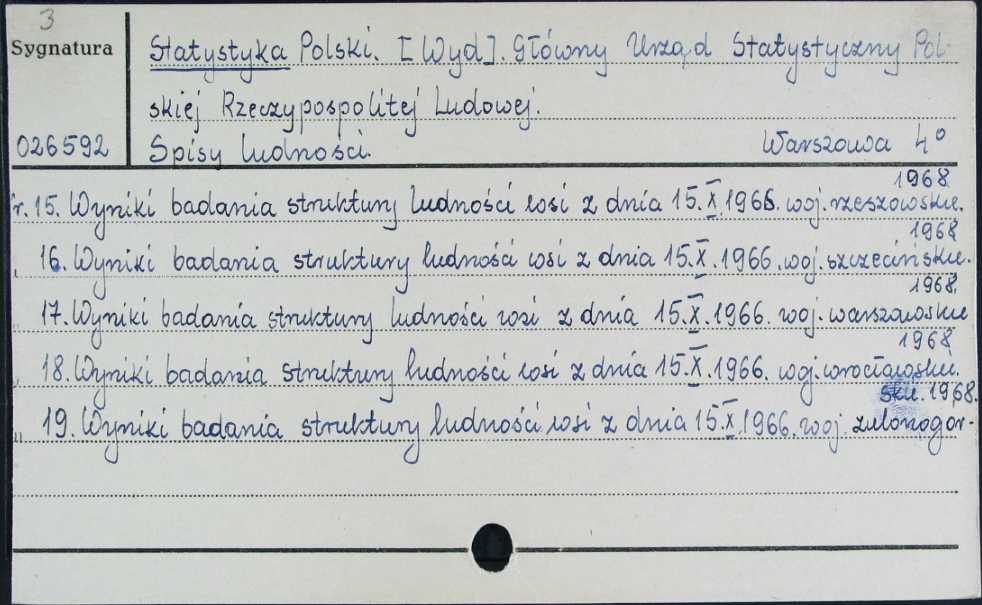 3
Sygnatura
Statystyka Polski. [Wyd]. Główny Urząd Statystyczny Pol-
skiej Rzeczypospolitej Ludowej.
026592 Spisy ludności. Warszawa 4°
1968
r. 15. Wyniki badania struktury ludności wsi z dnia 15.X.1966. woj. rzeszowskie.
1968
" 16. Wyniki badania struktury ludności wsi z dnia 15.X.1966. woj. szczecińskie.
1968
17. Wyniki badania struktury ludności wsi z dnia 15.X.1966. woj. warszawskie
1968
18. Wyniki badania struktury ludności wsi z dnia 15.X.1966. woj. wrocławskie.
skie. 1968.
" 19. Wyniki badania struktury ludności wsi z dnia 15.X.1966. woj. zielonogór-